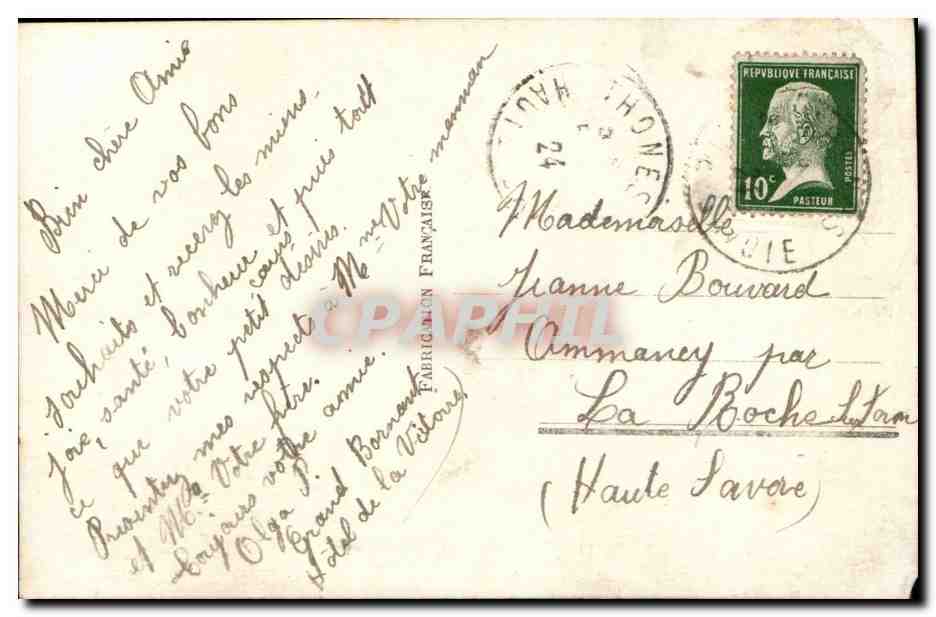 Bien chère Amie
Merci de vos bons
souhaits et recevez les miens.
joie, santé, bonheur et puis tout
ce que votre petit cœur désire.
Présentez mes respects à Mme Votre maman
et Mr Votre père.
Toujours votre amie.
Olga P.
Grand Bornand
Hôtel de la Victoire
FABRICATION FRANÇAISE
THONES
HAUTE
24
SAVOIE
REPVBLIQUE FRANÇAISE
10c
POSTES
PASTEUR
Mademoiselle
Jeanne Bouvard
Ammancy par
La Roche
(Haute Savoie)
CPAPHIL